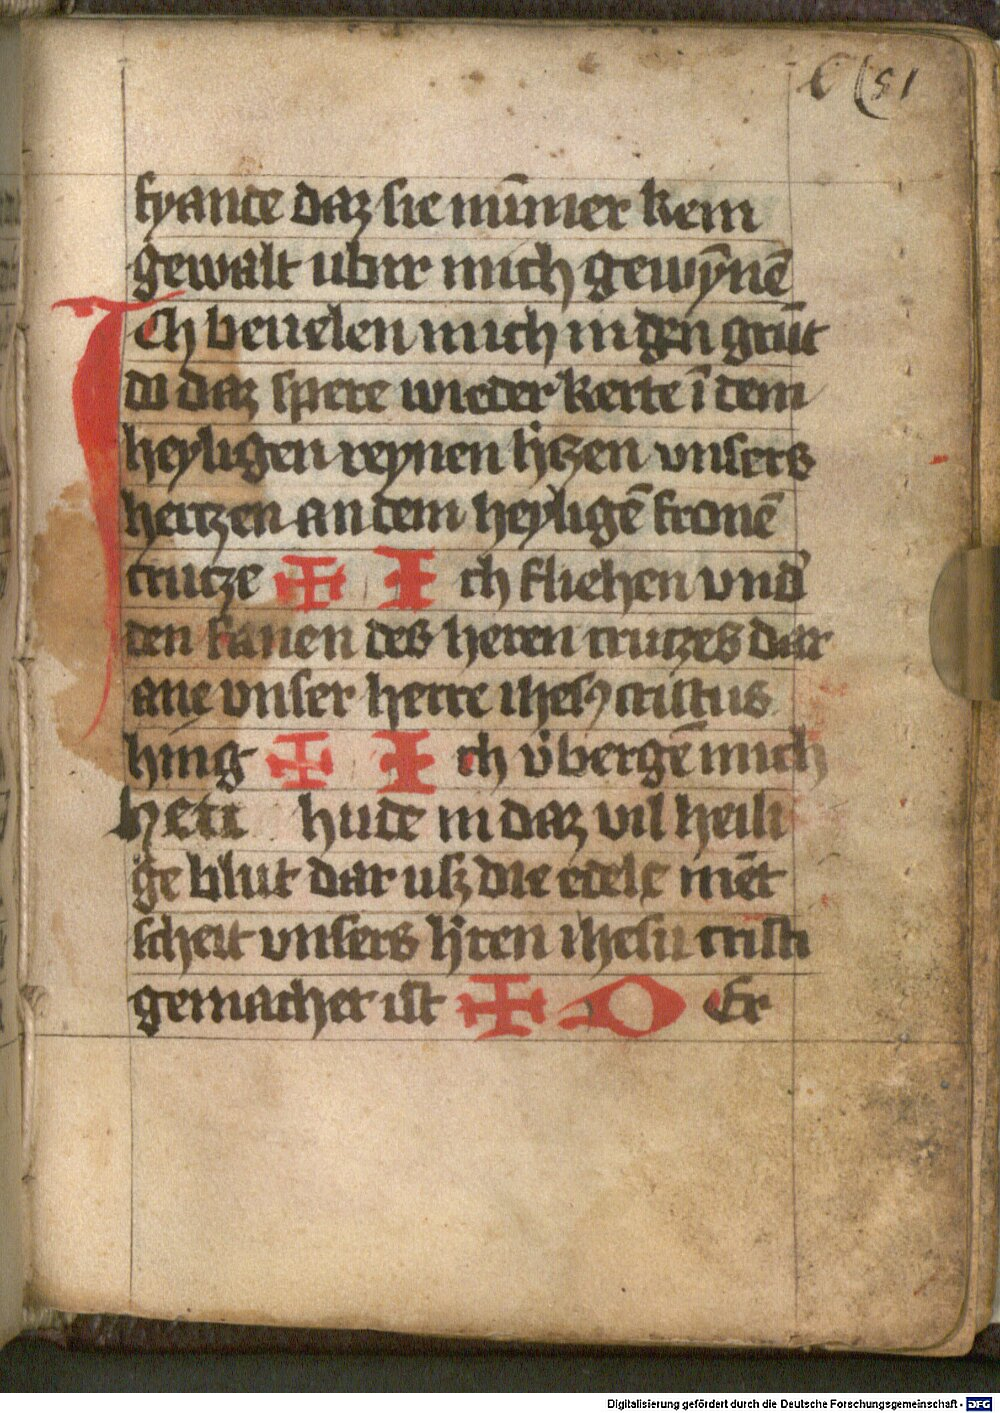 51
fyande daz sie nūmer kein
gewalt ubir mich gewȳnē
Ich beuelen mich in den grūt
do daz spere wieder kerte ī dem
heyligen reynen h'tzen vnsers
hertzen an dem heyligē fronē
crutze ✠ I ch fliehen vnd'
den fanen des heren crutzes dar
ane vnser herre ihesꝯ cristus
hing ✠ I ch vbergē mich
hude in daz vil heili
ge blut dar usz die edele mēt
scheit vnsers h'ren ihesu cristi
gemachet ist ✠ D Er
Digitalisierung gefördert durch die Deutsche Forschungsgemeinschaft - DFG